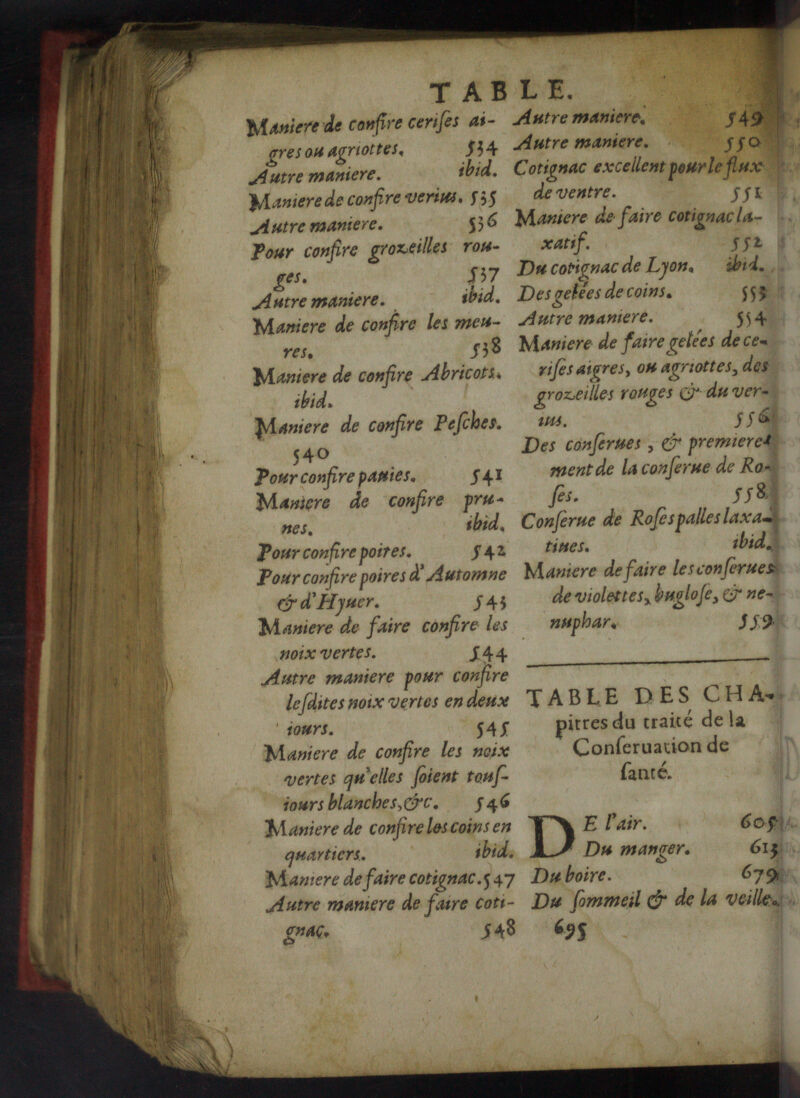 TABLE.
Maniere de confire cerises ai-
gres ou agriottes. 534
Autre maniere. ibid.
Maniere de confire verius. 535
Autre maniere. 536
Pour confire grozeilles rou-
ges. 537
Autre maniere. ibid.
Maniere de confire les meu-
res. 538
Maniere de confire Abricots.
ibid.
Maniere de confire Pesches.
540
Pour confire pauies. 541
Maniere de confire pru-
nes. ibid.
Pour confire poires. 542
Pour confire poires d'Automne
& d'Hyuer. 543
Maniere de faire confire les
noix vertes. 544
Autre maniere pour confire
lesdites noix vertes en deux
iours. 545
Maniere de confire les noix
vertes qu'elles soient tous-
iours blanches, &c. 546
Maniere de confire les coins en
quartiers. ibid.
Maniere de faire cotignac. 547
Autre maniere de faire coti-
gnac. 548
Autre maniere. 549
Autre maniere. 550
Cotignac excellent pour le flux
de ventre. 551
Maniere de faire cotignac la-
xatif. 552
Du cotignac de Lyon. ibid.
Des gelées de coins. 553
Autre maniere. 554
Maniere de faire gelées de ce-
rises aigres, ou agriottes, des
grozeilles rouges & du ver-
ius. 556
Des conserues, & premiere-
ment de la conserue de Ro-
ses. 558
Conserue de Roses palles laxa-
tiues. ibid.
Maniere de faire les conserues
de violettes, buglose, & ne-
nuphar. 559
TABLE DES CHA-
pitres du traité de la
Conseruation de
santé.
DE l'air. 605
Du manger. 613
Du boire. 679
Du sommeil & de la veille.
695